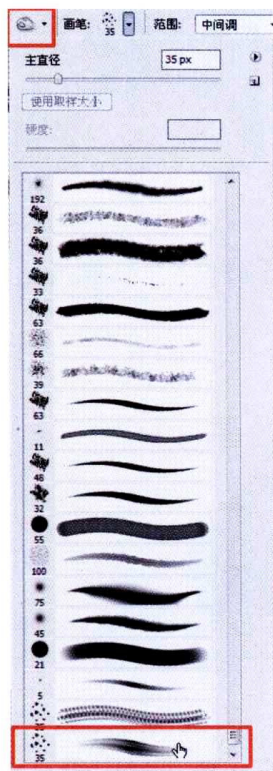 画笔: 35 范围: 中间调
主直径 35 px
使用取样大小
硬度:
192
36
36
33
63
66
39
63
11
48
32
55
100
75
45
21
5
35